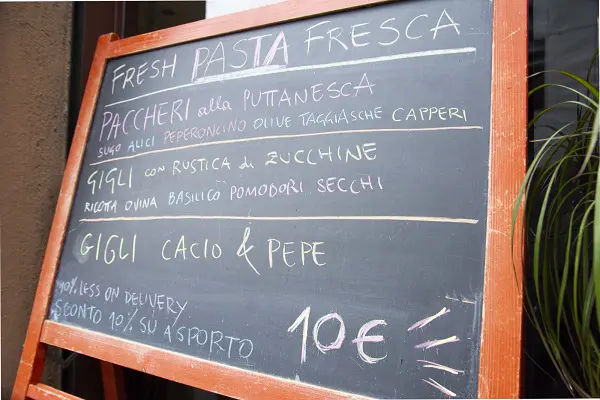 FRESH PASTA FRESCA
PACCHERI alla PUTTANESCA
SUGO ALICI PEPERONCINO OLIVE TAGGIASCHE CAPPERI
GIGLI CON RUSTICA di ZUCCHINE
RICOTTA OVINA BASILICO POMODORI SECCHI
GIGLI CACIO & PEPE
10% LESS ON DELIVERY
SCONTO 10% SU ASPORTO
10€